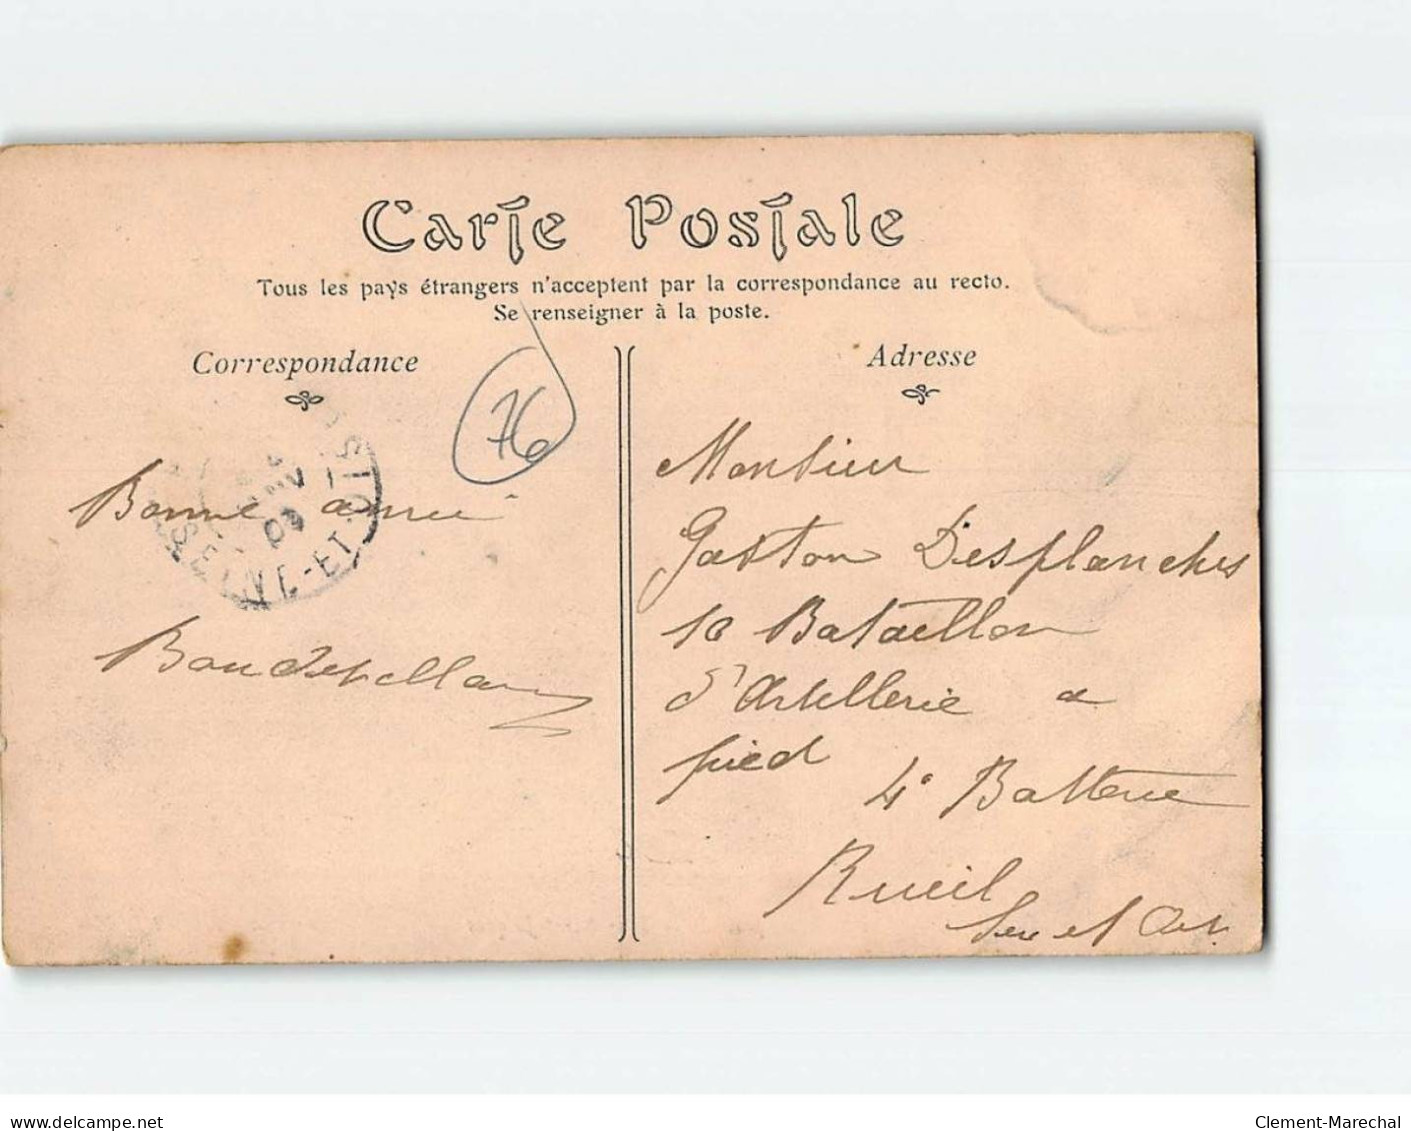 Carte Postale
Tous les pays étrangers n'acceptent par la correspondance au recto.
Se renseigner à la poste.
Correspondance
Adresse
76
SEINE-ET-OISE
09
Bonne année
Monsieur
Gaston Desplanches
10 Bataillon
d'Artillerie a
pied
4e Batterie
Rueil
Seine et Oise
delcampe.net
Clement-Marechal